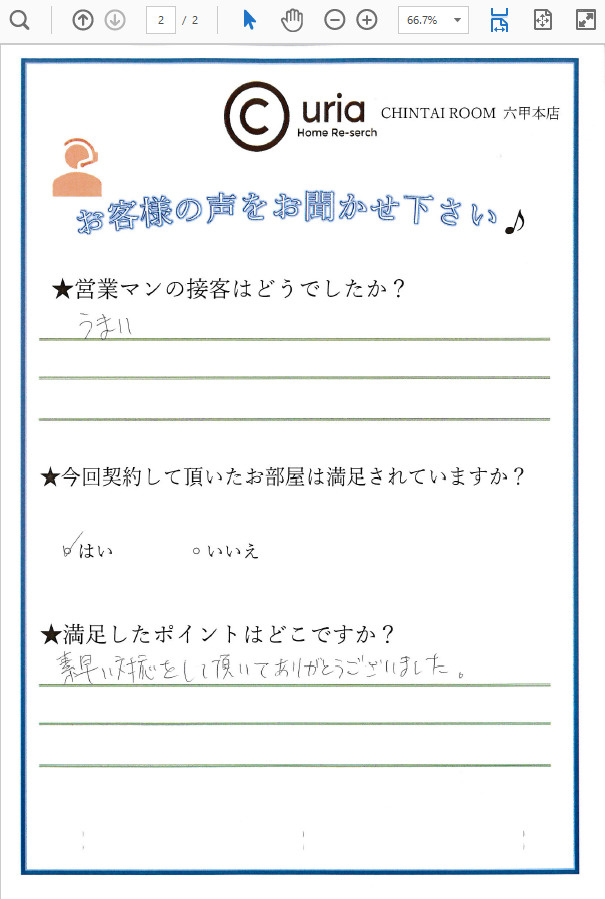 2 / 2
66.7%
Curia
Home Re-serch
CHINTAI ROOM 六甲本店
お客様の声をお聞かせ下さい♪
★営業マンの接客はどうでしたか？
うまい
★今回契約して頂いたお部屋は満足されていますか？
はい いいえ
★満足したポイントはどこですか？
素早い対応をして頂いてありがとうございました。